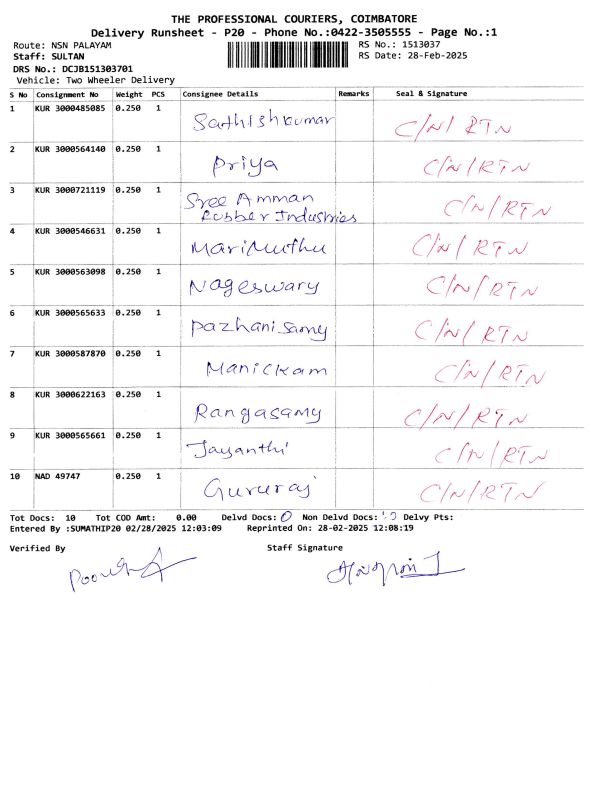 THE PROFESSIONAL COURIERS, COIMBATORE
Delivery Runsheet - P20 - Phone No.:0422-3505555 - Page No.:1
Route: NSN PALAYAM RS No.: 1513037
Staff: SULTAN RS Date: 28-Feb-2025
DRS No.: DCJB151303701
Vehicle: Two Wheeler Delivery
S No Consignment No Weight PCS Consignee Details Remarks Seal & Signature
1 KUR 3000485085 0.250 1 Sathishkumar C/N/ RTN
2 KUR 3000564140 0.250 1 Priya C/N/RTN
3 KUR 3000721119 0.250 1 Sree Amman C/N/RTN
Rubber Industries
4 KUR 3000546631 0.250 1 Marimuthu C/N/RTN
5 KUR 3000563098 0.250 1 Nageswary C/N/RTN
6 KUR 3000565633 0.250 1 Pazhanisamy C/N/RTN
7 KUR 3000587870 0.250 1 Manickam C/N/RTN
8 KUR 3000622163 0.250 1 Rangasamy C/N/RTN
9 KUR 3000565661 0.250 1 Jayanthi C/N/RTN
10 NAD 49747 0.250 1 Gururaj C/N/RTN
Tot Docs: 10 Tot COD Amt: 0.00 Delvd Docs: 0 Non Delvd Docs: 10 Delvy Pts:
Entered By :SUMATHIP20 02/28/2025 12:03:09 Reprinted On: 28-02-2025 12:08:19
Verified By Staff Signature